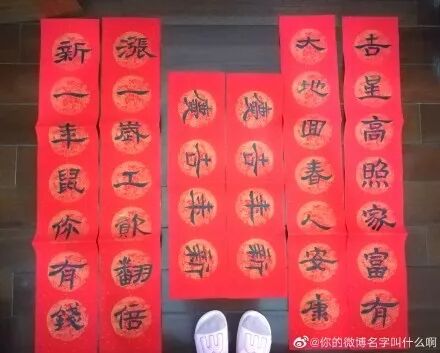 吉星高照家富有
大地回春人安康
新年吉慶
新年吉慶
漲一歲工飲翻倍
新一年鼠你有錢
@你的微博名字叫什么啊